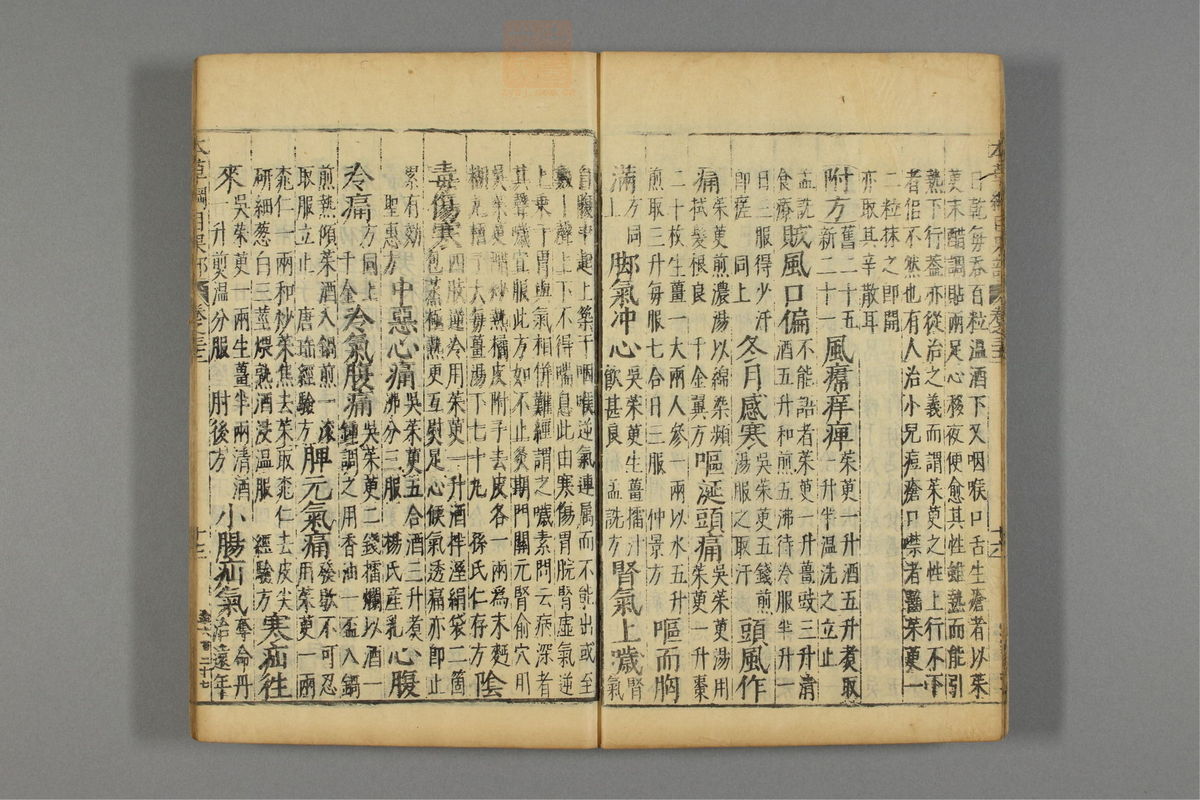 日乾每吞百粒溫酒下又咽喉口舌生瘡者以茱
萸末醋調貼兩足心移夜便愈其性雖熱而能引
熱下行蓋亦從治之義而謂茱萸之性上行不下
者佀不然也有人治小兒痘瘡口噤者齧茱萸一
二粒抹之即開
亦取其辛散耳
附方舊二十五新二十一
風𤺋痒痺茱萸一升酒五升煑取一升半溫洗之立止
孟詵食療
賊風口偏不能語者茱萸一升薑豉三升清酒五升和煎五沸待冷服半升一
日三服得少汗即瘥同上
冬月感寒吳茱萸五錢煎湯服之取汗
頭風作
痛茱萸煎濃湯以綿染頻拭髮根良千金翼方
嘔涎頭痛吳茱萸湯用茱萸一升棗
二十枚生薑一大兩人參一兩以水五升
煎取三升每服七合日三服仲景方
嘔而胸
滿方同上
脚氣冲心吳茱萸生薑擂汁飲甚良孟詵方
腎氣上噦腎氣
自腹中起上築于咽喉逆氣連属而不能出或至
數十聲上下不得喘息此由寒傷胃脘腎虛氣逆
上乗于胃與氣相倂難經謂之噦素問云病深者
其聲噦宜服此方如不止灸期門關元腎俞穴用
吳茱萸醋炒熱橘皮附子去皮各一兩爲末麪
糊丸梧子大每薑湯下七十丸孫氏仁存方
陰
毒傷寒四肢逆冷用茱萸一升酒拌溼絹袋二箇
包蒸極熱更互熨足心候氣透痛亦即止
累有効聖惠方
中惡心痛吳茱萸五合酒三升煑沸分三服楊氏產乳
心腹
冷痛方同上千金
冷氣腹痛吳茱萸二錢擂爛以酒一鍾調之用香油一盃入鍋
煎熱傾茱酒入鍋煎一滚取服立止唐瑤經驗方
脾元氣痛發歇不可忍用茱萸一兩
桃仁一兩和炒茱焦去茱取桃仁去皮尖
研細葱白三莖煨熟酒浸溫服經驗方
寒疝徃
來吳茱萸一兩生薑半兩清酒一升煎溫分服肘後方
小腸疝氣奪命丹治遠年
本草綱目果部
卷之三十二
十六
本草綱目果部
卷之三十二
十六